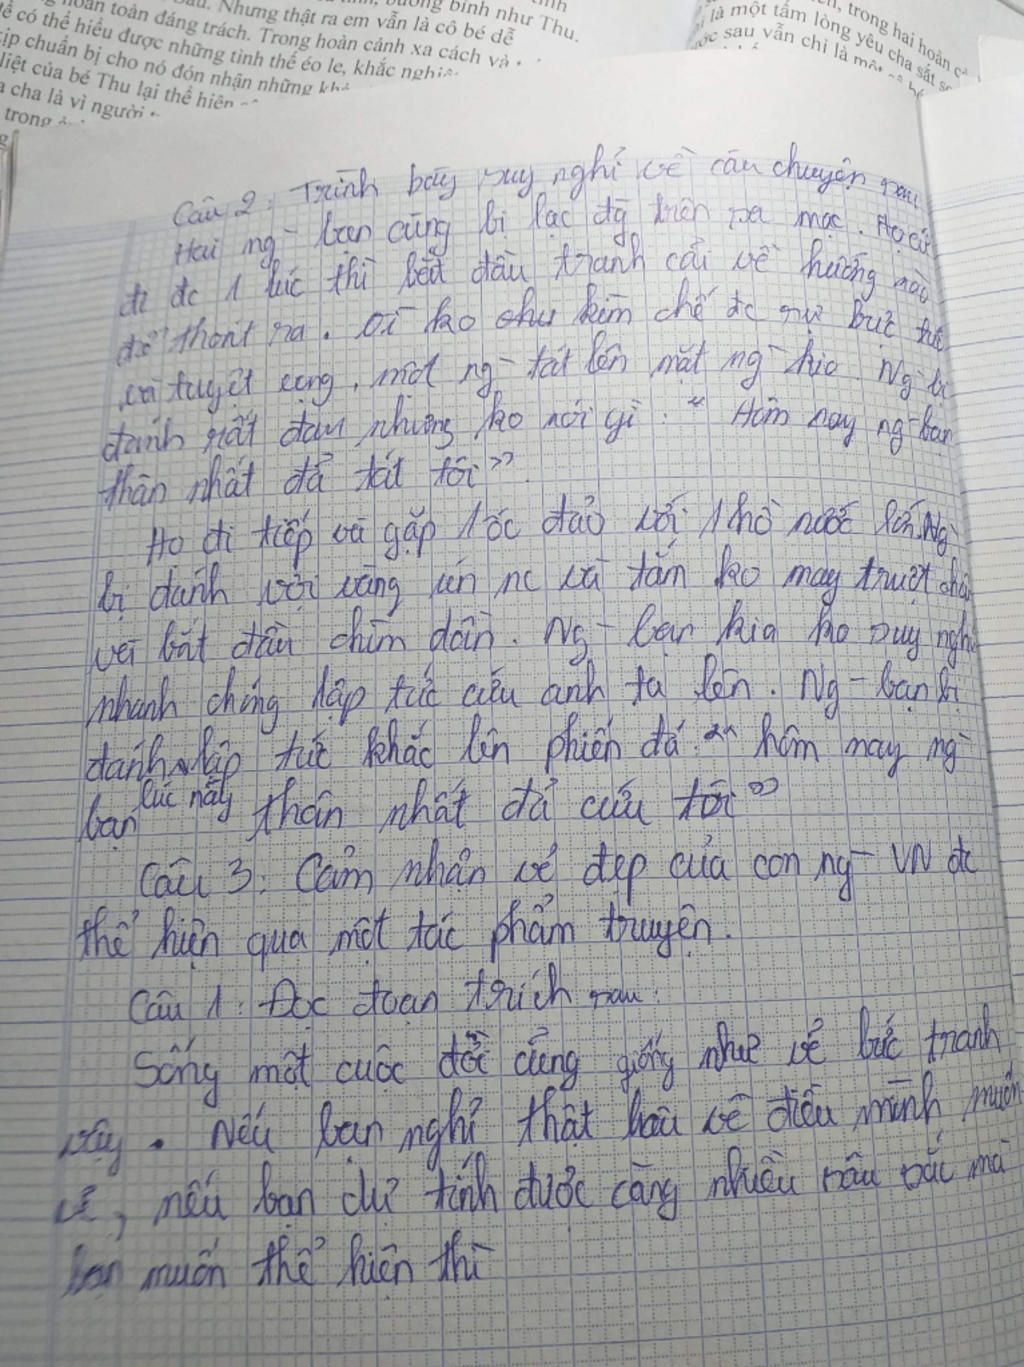 hoàn toàn đáng trách. Trong hoàn cảnh xa cách và
bướng bỉnh như Thu.
Nhưng thật ra em vẫn là cô bé dễ
để có thể hiểu được những tình thế éo le, khắc
kịp chuẩn bị cho nó đón nhận những
liệt của bé Thu lại thể hiện
cha là vì người
trong
trong hai hoàn
là một tấm lòng yêu cha sắt
sau vẫn chỉ là một
Câu 2: Trình bày suy nghĩ về câu chuyện sau
Hai ng- bạn cùng bị lạc đg trên sa mạc. Họ cứ
đi đc 1 lúc thì bắt đầu tranh cãi về hướng nào
để thoát ra. Vì ko chịu kìm chế đc sự bực tức
và tuyệt vọng, một ng- tát lên mặt ng- kia. Ng- bị
đánh rất đau nhưng ko nói gì: " Hôm nay ng- bạn
thân nhất đã tát tôi".
Họ đi tiếp và gặp 1 ốc đảo với 1 hồ nước lớn. Ng-
bị đánh vội vàng uốn nc và tắm ko may trượt chân
và bắt đầu chìm dần. Ng- bạn kia ko suy nghĩ
nhanh chóng lập tức cứu anh ta lên. Ng- bạn bị
đánh lúc nãy lập tức khắc lên phiến đá: " hôm nay ng-
bạn thân nhất đã cứu tôi"
Câu 3: Cảm nhận vẻ đẹp của con ng- VN đc
thể hiện qua một tác phẩm truyện.
Câu 1: Đọc đoạn trích sau:
Sống một cuộc đời cũng giống như vẽ bức tranh
vậy. Nếu bạn nghĩ thật lâu về điều mình muốn
vẽ, nếu bạn dự tính được càng nhiều màu sắc mà
bạn muốn thể hiện thì